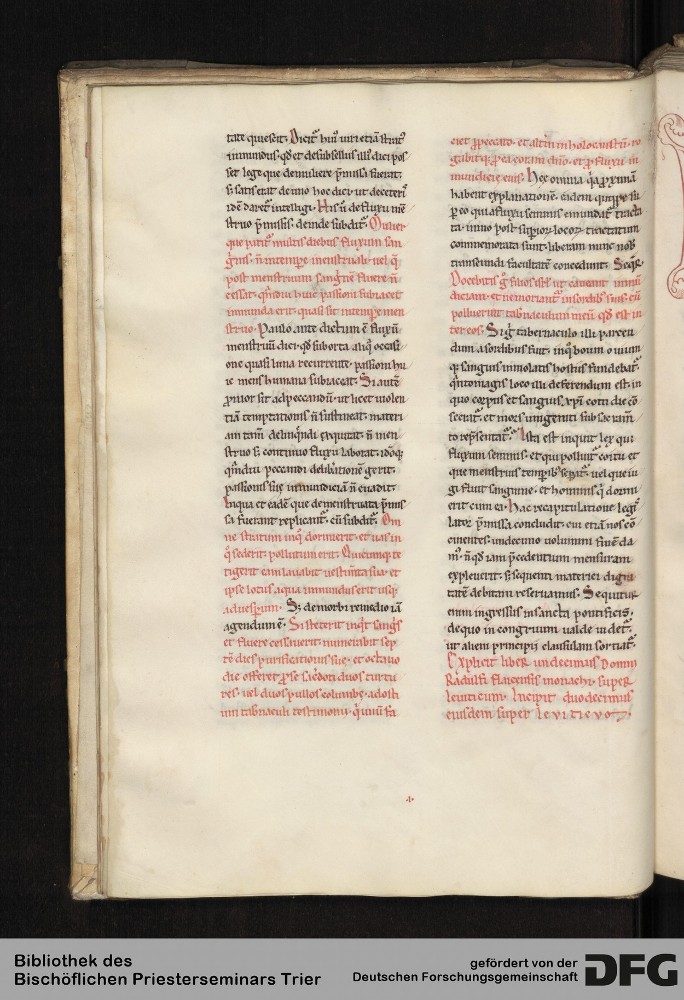 tate quiescit. Dicit᷒ hui᷒ uiri etiā stratū
inmundus. qđ et de subsellus illi᷒ dici pos
set lege que de muliere p̄missa fuerat.
s; satis erat de uno hoc dici. ut de ceteri᷒
idē daret᷒ intelligi. His ñ de fluxu mē
struo p̄missis. deinde subdit. Mulier
que patit᷒ multis diebus fluxum san
guis. ñ in tempore menstruali. uel q̄
post menstruum sanguinē fluere ñ
cessat. qmdiu huic passioni subiacet
inmunda erit. quasi sit in tempore men
struo. Paulo ante dictum ē fluxū
menstruū dici. qđ suborta aliq̄ occasi
one quasi luna recurrente. passioni hu
ic mens humana subiaceat. Si autē
p̄nior sit ad peccandū. ut licet uiolen
tiā temptationis ñ sustineat. materi
am tam̄ delinq̄ndi exquirat. ñ men
struo s; continuo fluxu laborat. idoq;
qmdiu peccandi delib̄ationē gerit.
passionis sue inmundiciā ñ euadit.
Liqua et eadē que de menstruata p̄mis
sa fuerant replicant᷒. cū subdit᷒. Om
ne stratum inq̄ dormierit. et uas in
q̄ sederit. pollutum erit. Quicumq; te
tigerit eam lauabit uestim̄ta sua. et
ipse lotus aqua inmundus erit usq;
ad uesp̄um. S; de morbi remedio iā
agendum ē. Si steterit inq̇t sangis
et fluere cessauerit. numerabit sep
tē dies purificationis sue. et octauo
die offeret p̄ se sac̄doti duos turtu
res. uel duos pullos columbe. ad osti
um tab̄naculi testimonii. q̇ unū fa
ciet p̄ peccato. et alt̄m in holocaustū. ro
gabitq; p̄ ea coram dn̄o. et p̄ fluxu in
mundicie eius. Hec omnia q̇a p̄ximā
habent explanationē. eadem quippe su
p̄ eo qui a fluxu seminis emundat᷒ tracta
ta. immo post sup̄iorū locorū tractatum
commemorata sunt. liberam nunc nob̄
transeundi facultatē concedunt. Seq̇t᷒.
Docebitis g̊ filios isrl̄ ut caueant inmū
diciam. et ne moriant᷒ in sordib; suis. cū
polluerint tab̄naculum meū qđ est in
ter eos. Si g̊ tabernaculo illi parcen
dum a sordibus fuit. in q̊ boum ouium
q; sanguis inmolatis hostiis fundebat᷒.
q̄nto magis loco illi deferendum est. in
quo corpus et sanguis xp̄i cotidie cō
secrat᷒. et mors unigeniti sub sacram̄
to rep̄sentat᷒. Ista est inquit lex qui
fluxum seminis. et qui polluit᷒ coitu. et
que menstruis temporib; separat᷒. uel que iu
gi fluit sanguine. et hominis q̇ dormi
erit cum ea. Hac recapitulatione legis
lator p̄missa concludit. cui etiā nos cō
cinentes. undecimo uolumini finē da
m᷒. ñ qđ iam p̄cedentium mensuram
expleuerit. s; sequenti materiei digni
tatē debitam reseruamus. Sequitur
enim ingressus in sancta pontificis.
de quo incongruum ualde uidet᷒.
ut alieni principii clausulam sortiat᷒.
Explicit liber undecimus Domni
Radulfi flaicensis monachi super
leuiticum. Incipit duodecimus
eiusdem super leviticvm.
Bibliothek des
Bischöflichen Priesterseminars Trier
gefördert von der
Deutschen Forschungsgemeinschaft
DFG